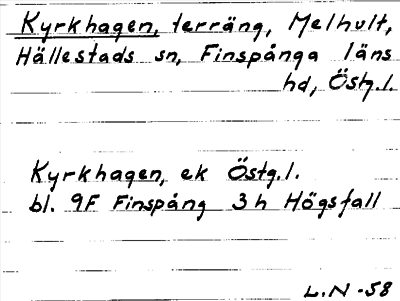 Kyrkhagen, terräng, Melhult,
Hällestads sn, Finspånga läns
hd, Östg.l.
Kyrkhagen, ek Östg.l.
bl. 9F Finspång 3h Högsfall
L.N -58